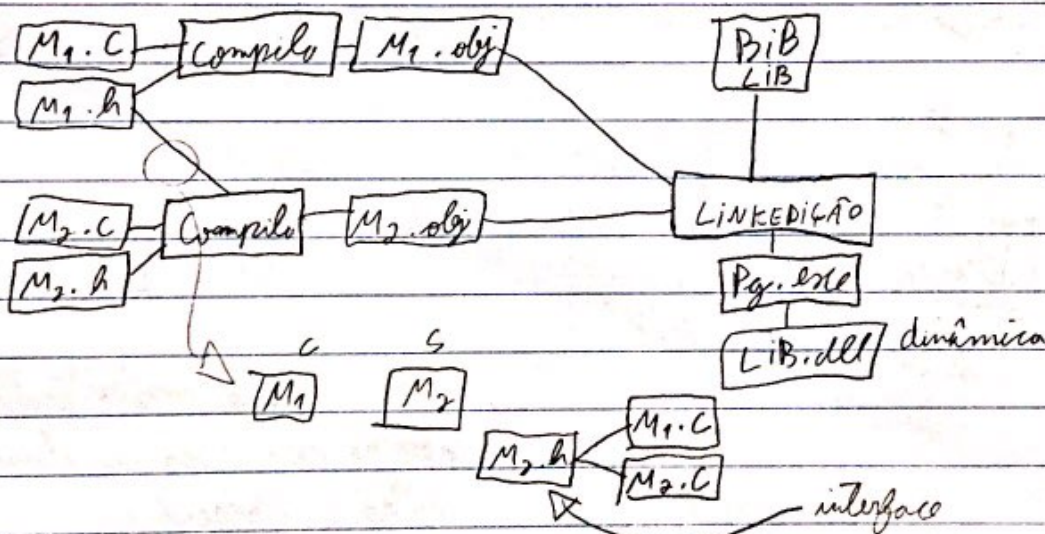 M1.C
Compila
M1.obj
BiB
LiB
M1.h
M2.C
Compila
M2.obj
LiNKEDIÇÃO
M2.h
Pg.exe
LiB.dll
dinâmica
C
S
M1
M2
M1.C
M2.h
M2.C
interface